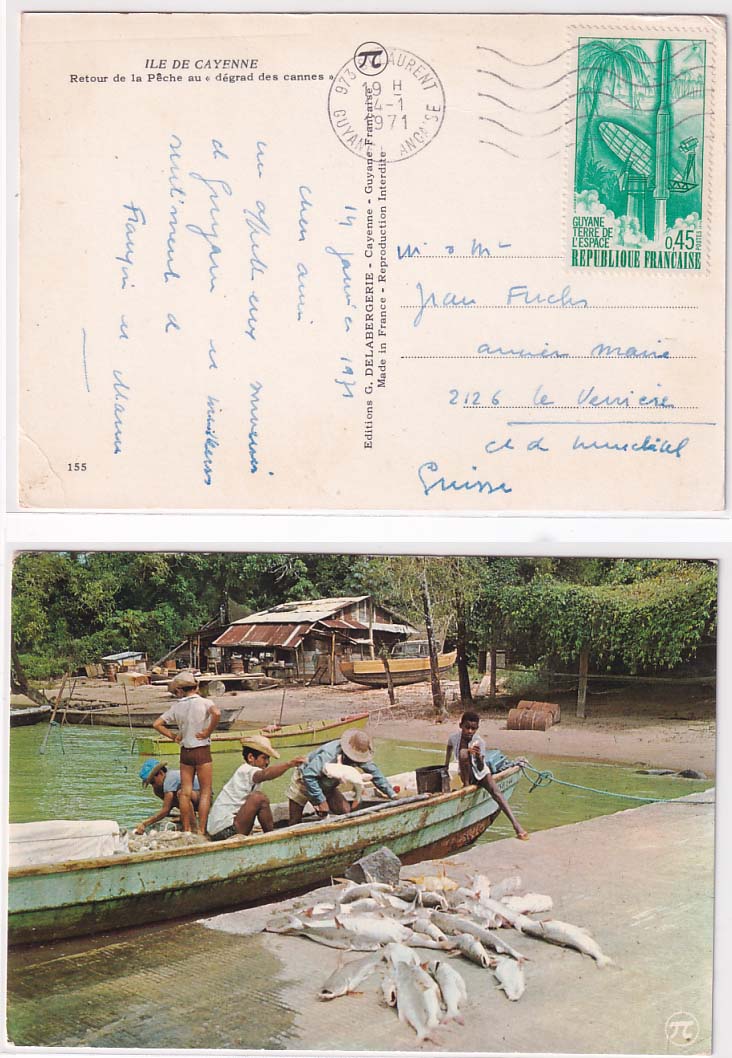 ILE DE CAYENNE
Retour de la Pêche au « dégrad des cannes »
π
973 St LAURENT
19 H
4-1
1971
GUYANE FRANCAISE
GUYANE
TERRE DE
L'ESPACE
0,45
POSTES
REPUBLIQUE FRANCAISE
Editions G. DELABERGERIE - Cayenne - Guyane Française
Made in France - Reproduction Interdite
14 janvier 1971
chers amis
un affectueux souvenir
de Guyane et
sentiments
M & Mme
Jean Fuchs
ancien Maire
2126 le Verrière
Suisse
155
π